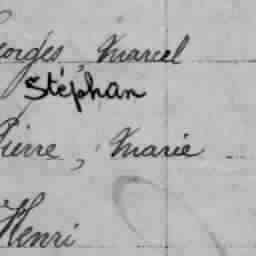 eorges, Marcel
Stéphan
Pierre, Marie
Henri